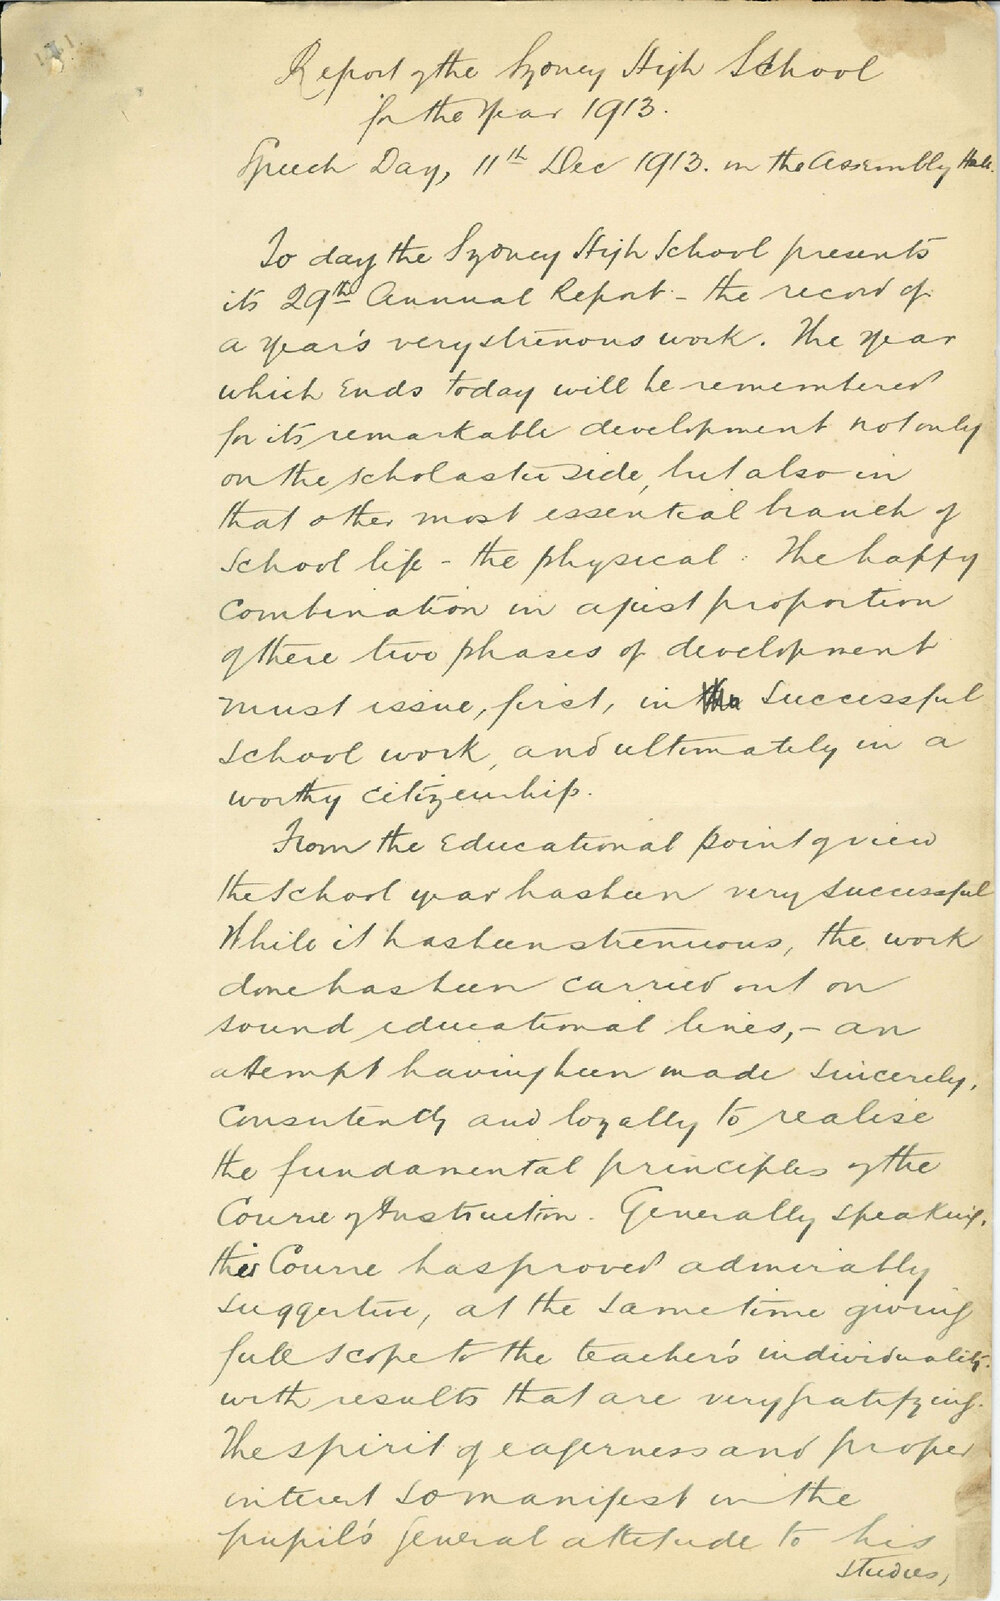 Report of the Sydney High School
for the Year 1913.
Speech Day, 11th Dec 1913. in the Assembly Hall.
To day the Sydney High School presents
its 29th Annual Report - the record of
a year's very strenous work. The year
which ends today will be remembered
for its remarkable development not only
on the scholastic side, but also in
that other most essential branch of
School life - the physical. The happy
combination in a just proportion
of these two phases of development
must issue, first, in successful
School work, and ultimately in a
worthy citizenship.
From the Educational point of view
the School year has been very successful
While it has been strenuous, the work
done has been carried out on
sound educational lines, - an
attempt having been made sincerely,
consistently and loyally to realise
the fundamental principles of the
Course of Instruction. Generally speaking,
this Course has proved admirably
suggestive, at the same time giving
full scope to the teacher's individuality,
with results that are very gratifying.
The spirit of eagerness and proper
interest so manifest in the
pupil's general attitude to his
studies,